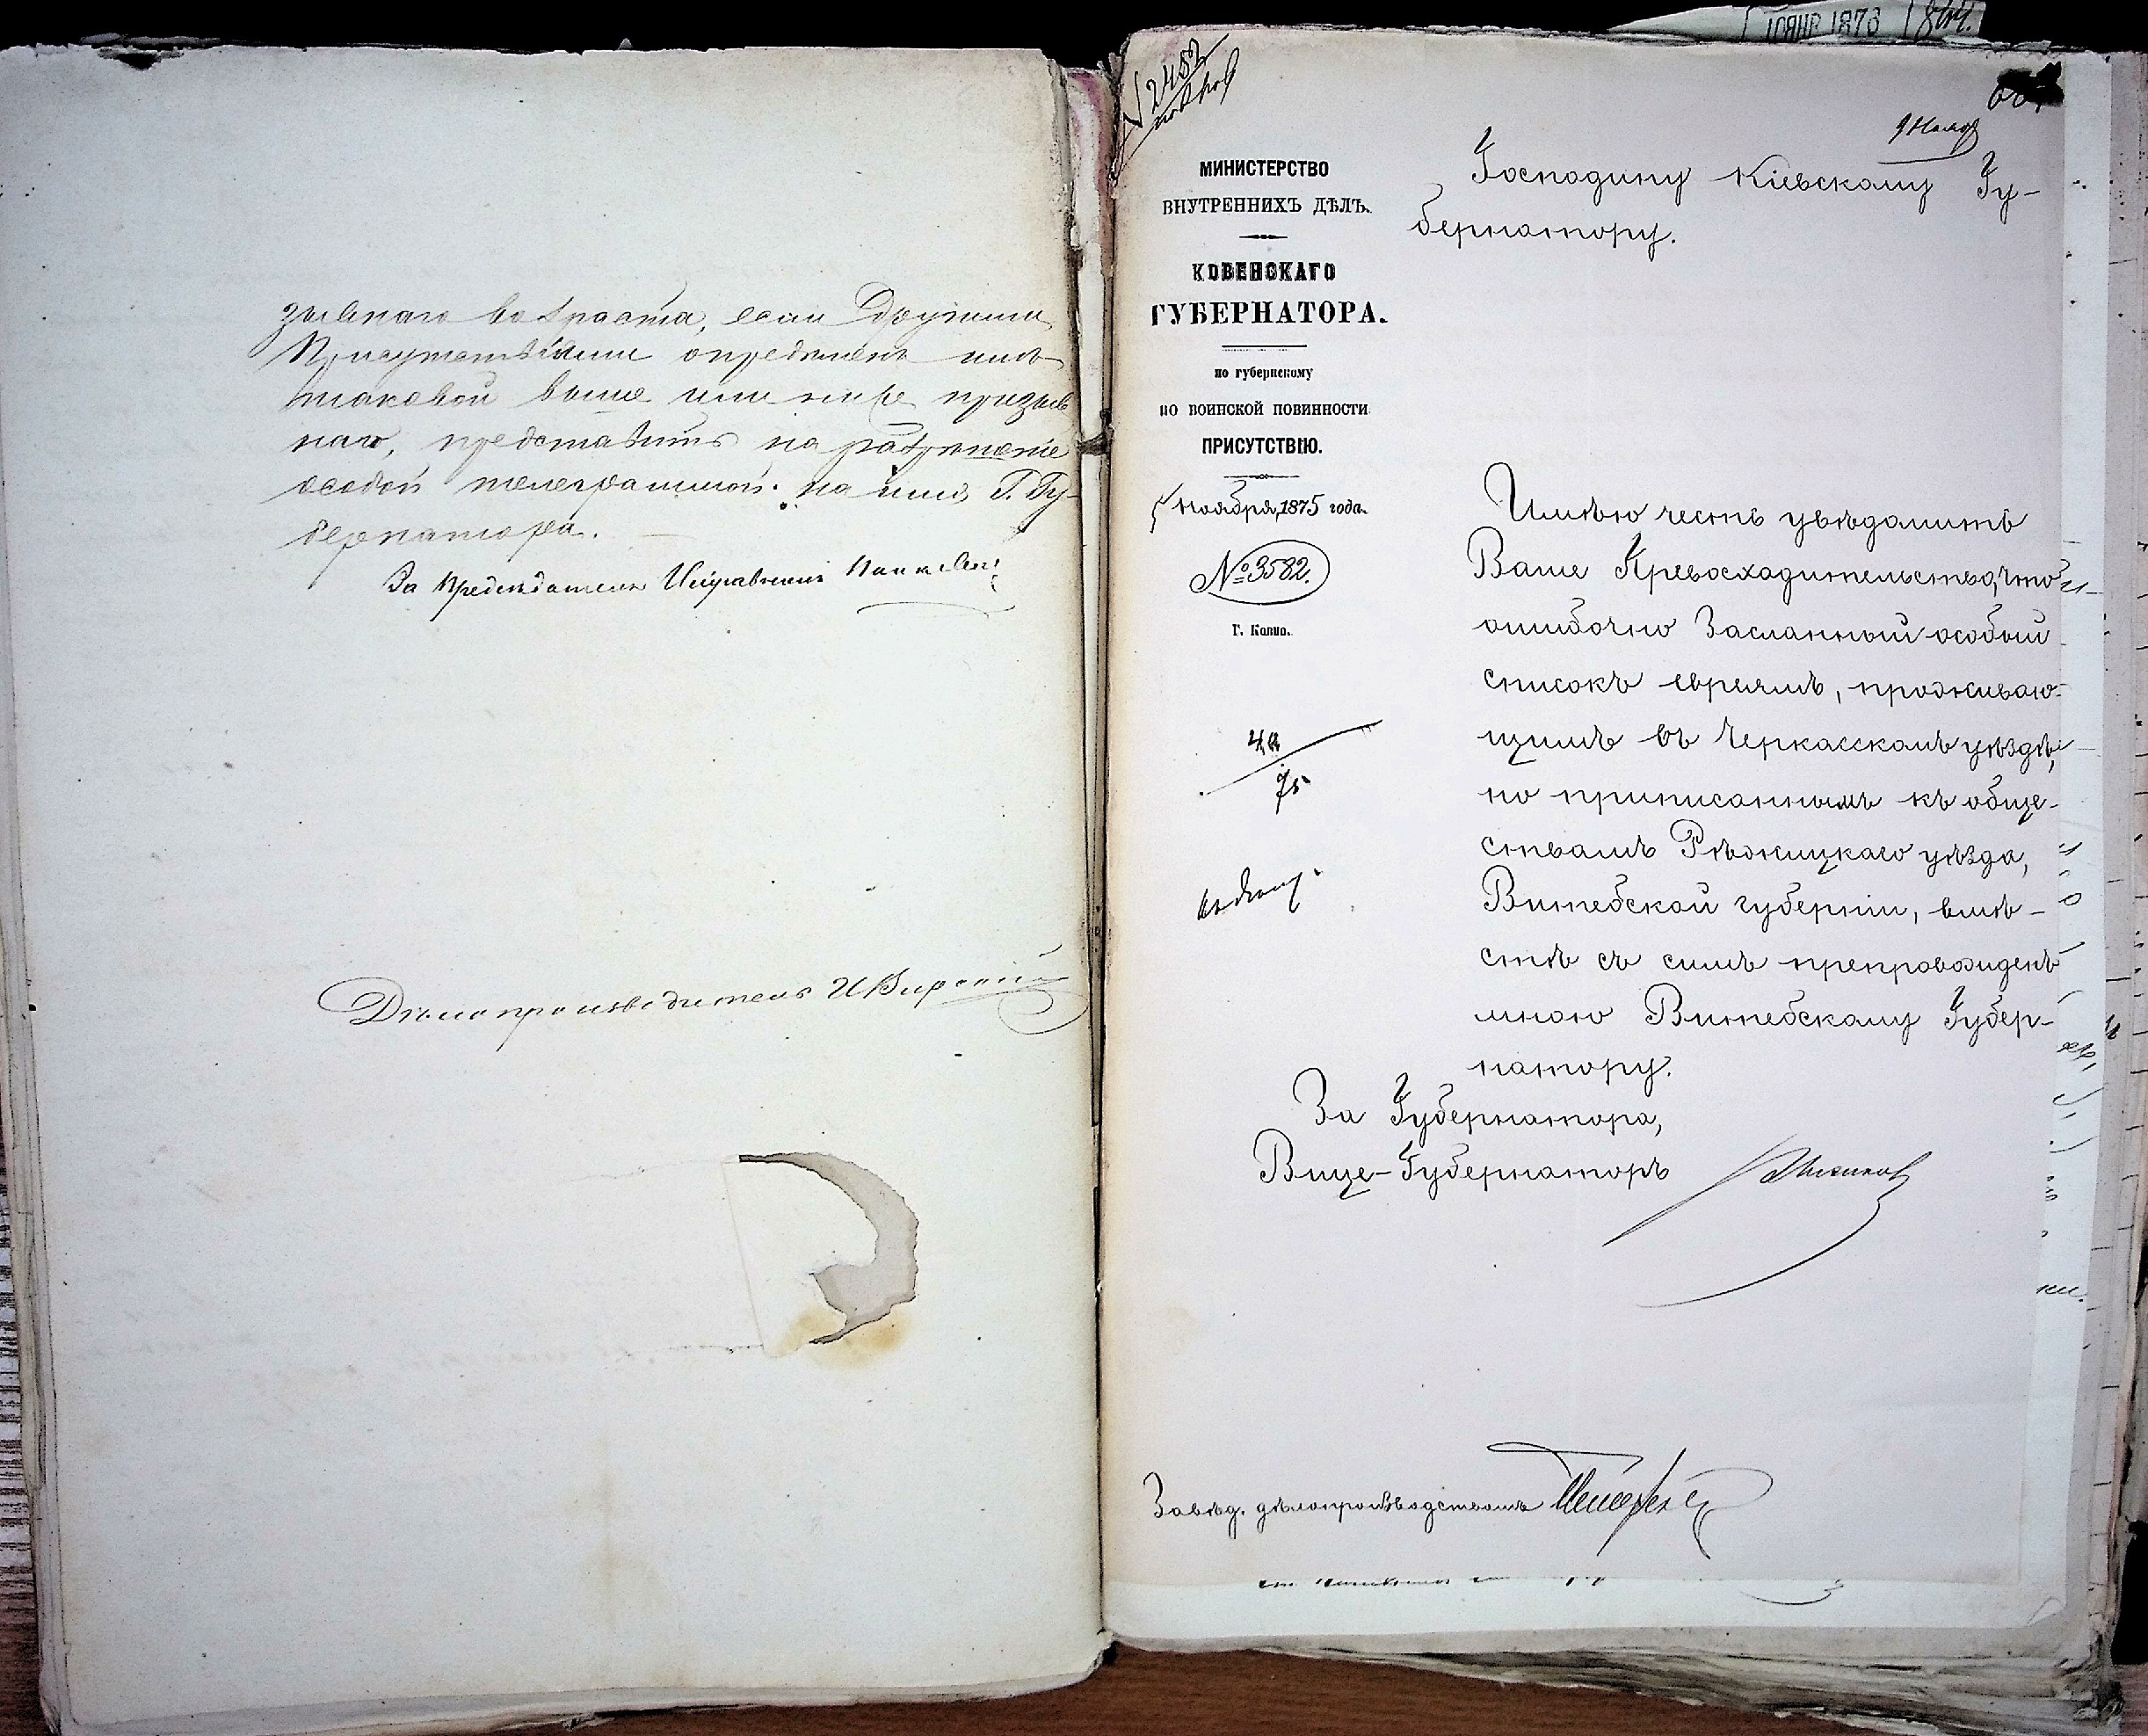 зывнаго возраста, если Другими
Присутствіями опредѣленъ имъ
таковой выше или ниже призыв
наго, представить на разрѣшеніе
особой телеграммой на имя Г. Гу-
бернатора.
За Предсѣдателя Исправникъ
Дѣлопроизводитель
10 ЯНВ 1876
№ 2482
МИНИСТЕРСТВО
ВНУТРЕННИХЪ ДѢЛЪ.
КОВЕНСКАГО
ГУБЕРНАТОРА.
по губернскому
по воинской повинности
ПРИСУТСТВІЮ.
Ноября 1875 года.
№ 3582.
Г. Ковно.
75
Господину Кіевскому Гу-
бернатору.
Имѣю честь увѣдомить
Ваше Превосходительство, что
ошибочно Засланный особый
списокъ евреямъ, проживаю-
щимъ въ Черкасскомъ уѣздѣ,
но приписаннымъ къ обще-
ствамъ Рѣжицкаго уѣзда,
Витебской губерніи, вмѣ-
стѣ съ симъ препровожденъ
мною Витебскому Губер-
натору.
За Губернатора,
Вице-Губернаторъ
Завѣд. дѣлопроизводствомъ